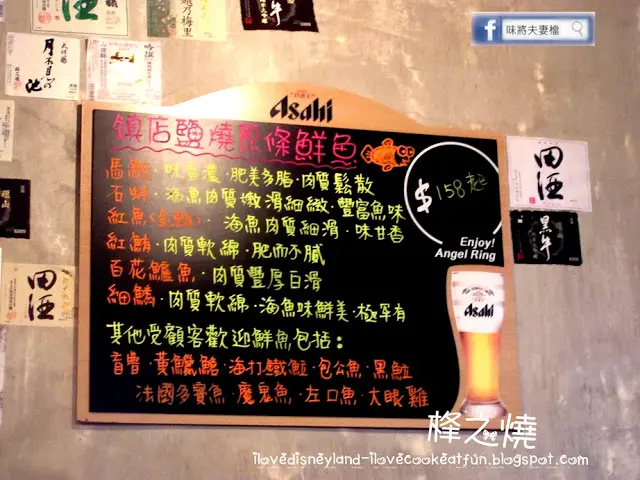 酒
梅里
大吟釀
月不見の池
吟撰
f 味將夫妻檔
Asahi
鎮店鹽燒原條鮮魚
馬鯛·味香濃·肥美多脂·肉質鬆散
石蚌·海魚肉質嫩滑細緻·豐富魚味
紅魚 海魚肉質細滑·味甘香
紅鮪·肉質軟綿·肥而不膩
百花鱸魚·肉質豐厚甘滑
細鱗·肉質軟綿·海魚味鮮美·極罕有
其他受顧客歡迎鮮魚包括：
盲曹·黃鱲鯧·海打鐵鱲·包公魚·黑鱲
法國多寶魚·魔鬼魚·左口魚·大眼雞
$158起
Enjoy!
Angel Ring
Asahi
田酒
黑牛
田酒
烽之燒
ilovedisneyland-ilovecookeatfun.blogspot.com